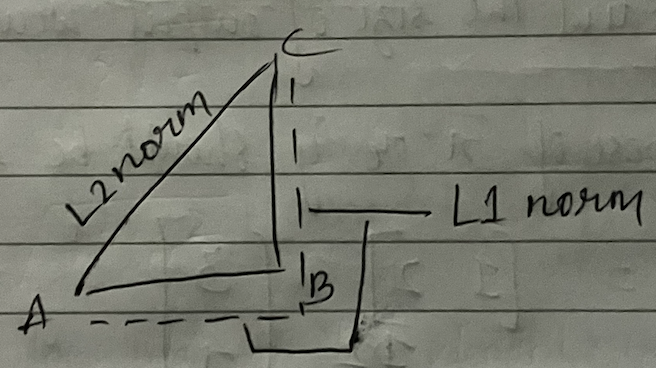 C
L2 norm
L1 norm
B
A